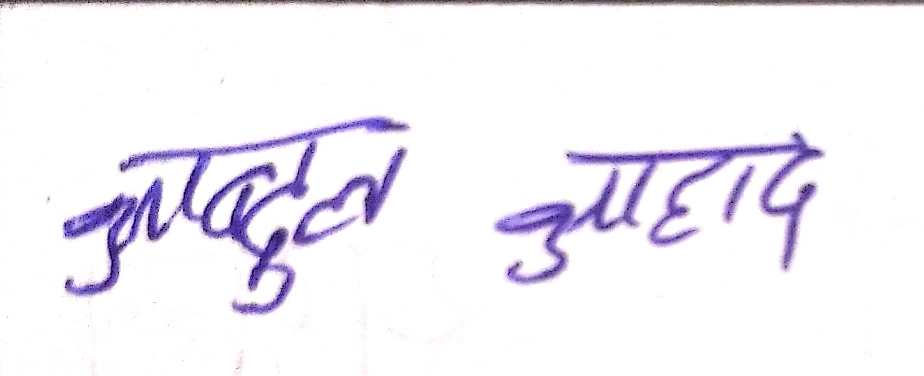 अब्दुल अहाद